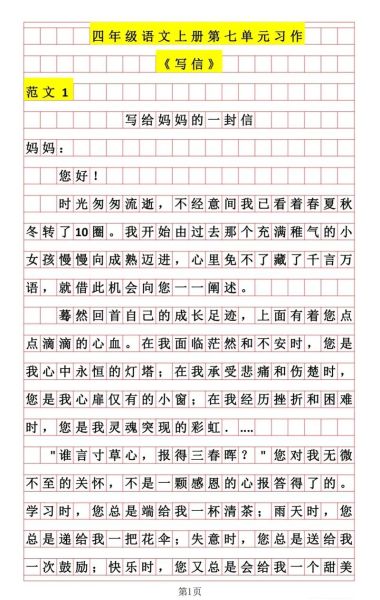 四年级语文上册第七单元习作
《写信》
范文1
写给妈妈的一封信
妈妈：
您好！
时光匆匆流逝，不经意间我已看着春夏秋
冬转了10圈。我开始由过去那个充满稚气的小
女孩慢慢向成熟迈进，心里免不了藏了千言万
语，就借此机会向您一一阐述。
蓦然回首自己的成长足迹，上面有着您点
点滴滴的心血。在我面临茫然和不安时，您是
我心中永恒的灯塔；在我承受悲痛和伤楚时，
您是我心扉仅有的小窗；在我经历挫折和困难
时，您是我灵魂突现的彩虹．....
"谁言寸草心，报得三春晖？"您对我无微
不至的关怀，不是一颗感恩的心报答得了的。
学习时，您总是端给我一杯清茶；雨天时，您
总是递给我一把花伞；失意时，您总是送给我
一次鼓励；快乐时，您又总是会给我一个甜美
第1页